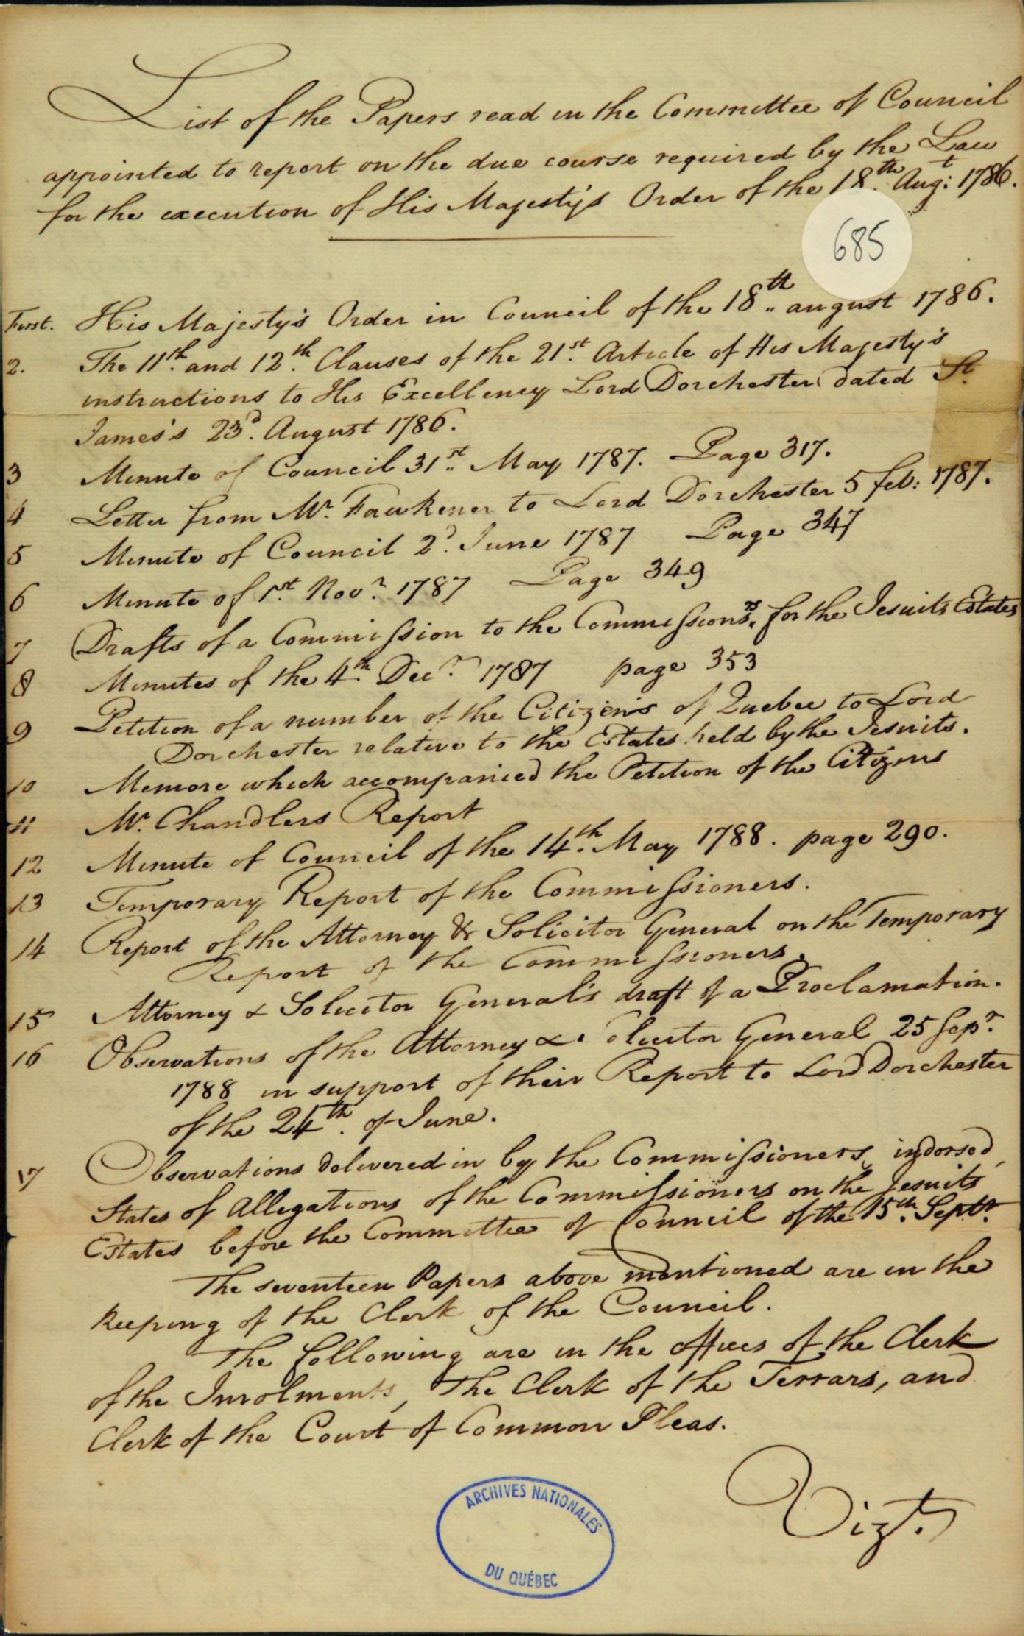 List of the Papers read in the Committee of Council
appointed to report on the due course required by the Law
for the execution of His Majesty's Order of the 18.th Aug:t 1786.
685
First. His Majesty's Order in Council of the 18th.. august 1786.
2. The 11th. and 12.th Clauses of the 21.st Article of His Majesty's
instructions to His Excellency Lord Dorchester dated St.
James's 23d. August 1786.
3 Minute of Council 31st.. May 1787. Page 317.
4 Letter from Mr. Fawkener to Lord Dorchester 5 feb: 1787.
5 Minute of Council 2d. June 1787 Page 347
6 Minute of 1st. Novr. 1787 Page 349
7 Drafts of a Commission to the Commissionrs. for the Jesuits Estates
8 Minutes of the 4th. Decr. 1787 page 353
9 Petition of a number of the Citizens of Quebec to Lord
Dorchester relative to the Estates held by the Jesuits.
10 Memore which accompanied the Petition of the Citizens
11 Mr. Chandlers Report
12 Minute of Council of the 14.th May 1788. page 290.
13 Temporary Report of the Commissioners.
14 Report of the Attorney & Solicitor General on the Temporary
Report of the Commissioners.
15 Attorney & Solicitor General's draft of a Proclamation.
16 Observations of the Attorney & olicitor General 25 Sepr.
1788 in support of their Report to Lord Dorchester
of the 24th. of June.
17 Observations delivered in by the Commissioners, indorsed,
States of Allegations of the Commissioners on the Jesuits
Estates before the Committee of Council of the 15th. Septr.
The seventeen Papers above mentioned are in the
keeping of the Clerk of the Council.
The following are in the offices of the Clerk
of the Inrolments, The Clerk of the Terrars, and
Clerk of the Court of Common Pleas.
Vizt.
ARCHIVES NATIONALES
DU QUÉBEC